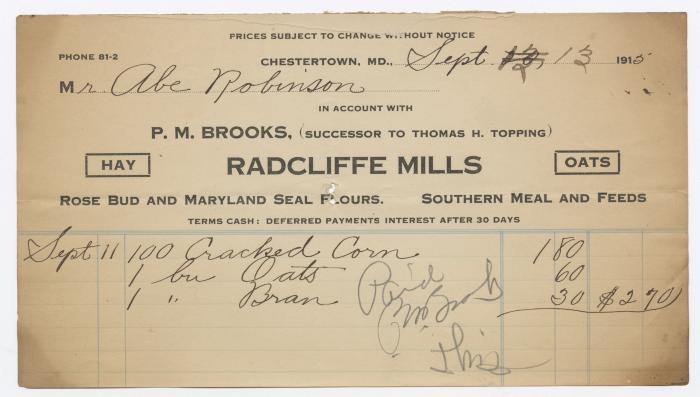 PRICES SUBJECT TO CHANGE WITHOUT NOTICE
PHONE 81-2
CHESTERTOWN, MD., Sept 13 1915
Mr Abe Robinson
IN ACCOUNT WITH
P. M. BROOKS, (SUCCESSOR TO THOMAS H. TOPPING)
HAY RADCLIFFE MILLS OATS
ROSE BUD AND MARYLAND SEAL FLOURS. SOUTHERN MEAL AND FEEDS
TERMS CASH: DEFERRED PAYMENTS INTEREST AFTER 30 DAYS
Sept 11 100 Cracked Corn 1 80
1 bu Oats 60
1 " Bran 30 $2 70
Paid